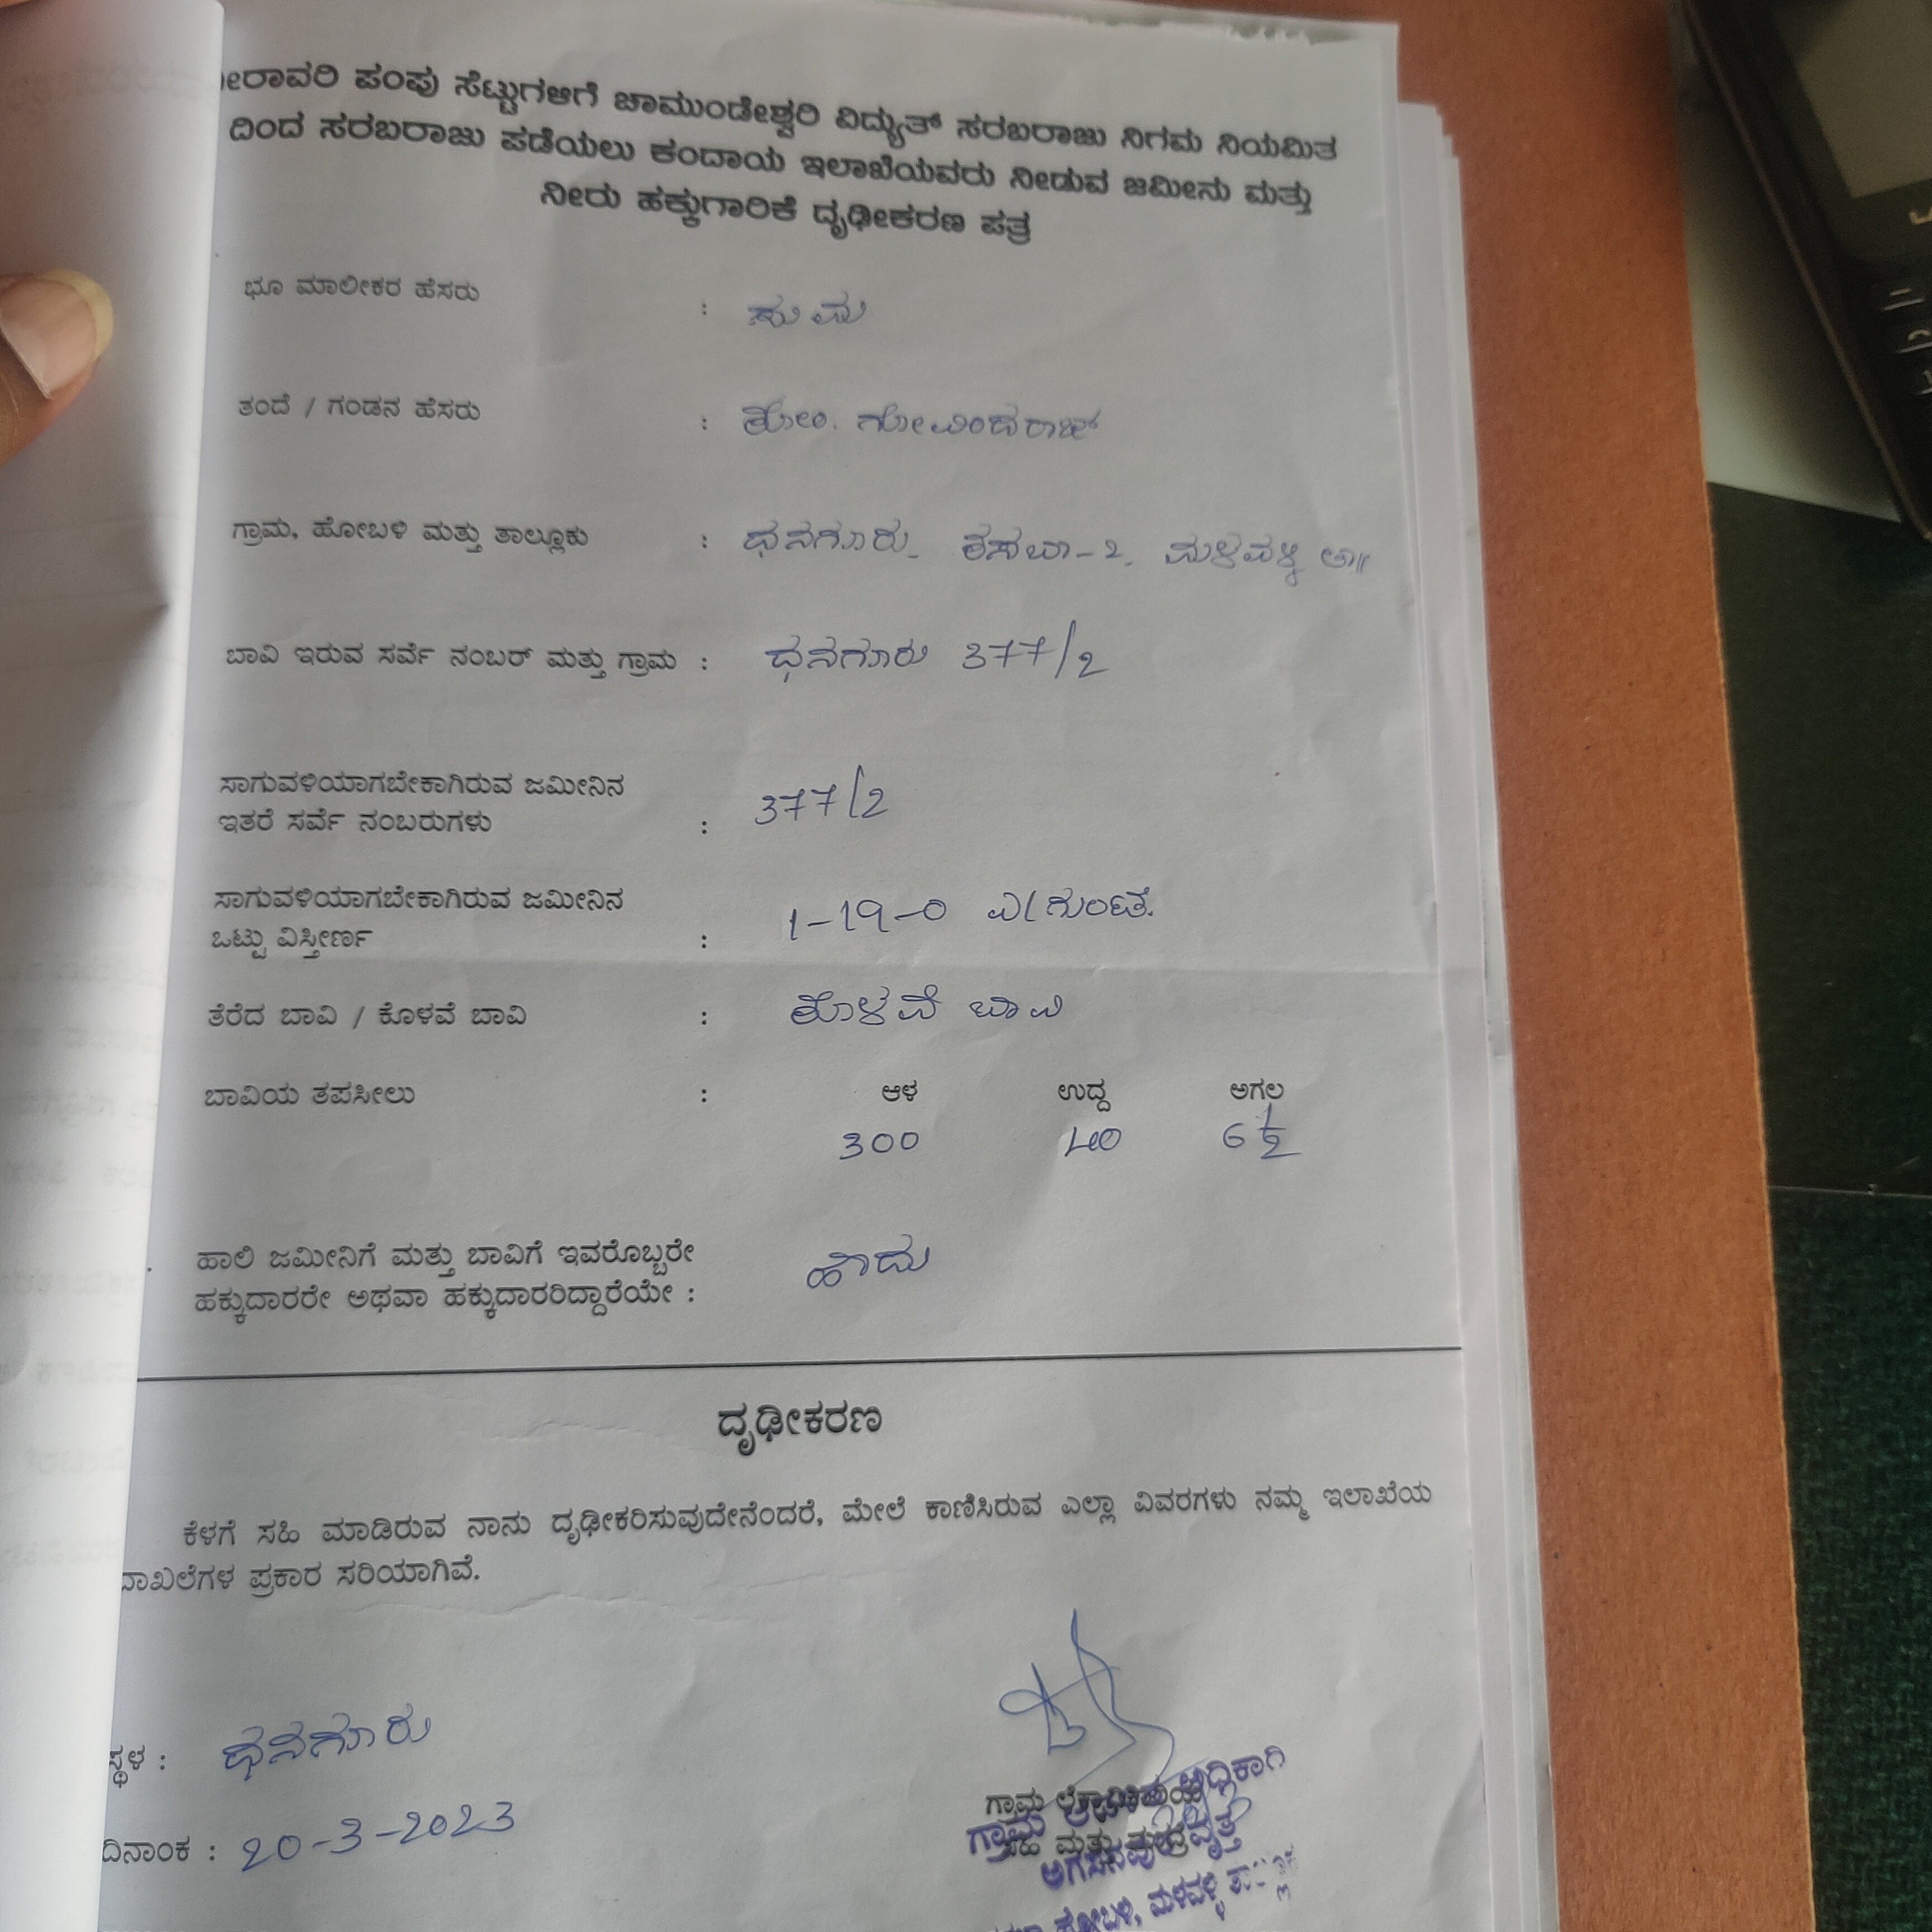 ನೀರಾವರಿ ಪಂಪು ಸೆಟ್ಟುಗಳಿಗೆ ಚಾಮುಂಡೇಶ್ವರಿ ವಿದ್ಯುತ್ ಸರಬರಾಜು ನಿಗಮ ನಿಯಮಿತ
ದಿಂದ ಸರಬರಾಜು ಪಡೆಯಲು ಕಂದಾಯ ಇಲಾಖೆಯವರು ನೀಡುವ ಜಮೀನು ಮತ್ತು
ನೀರು ಹಕ್ಕುಗಾರಿಕೆ ದೃಢೀಕರಣ ಪತ್ರ
ಭೂ ಮಾಲೀಕರ ಹೆಸರು : ಸುಮ
ತಂದೆ / ಗಂಡನ ಹೆಸರು : ಕೋಂ. ಗೋವಿಂದರಾಜ್
ಗ್ರಾಮ, ಹೋಬಳಿ ಮತ್ತು ತಾಲ್ಲೂಕು : ಧನಗೂರು. ಕಸಬಾ-2, ಮಳವಳ್ಳಿ ತಾ||
ಬಾವಿ ಇರುವ ಸರ್ವೆ ನಂಬರ್ ಮತ್ತು ಗ್ರಾಮ : ಧನಗೂರು 377/2
ಸಾಗುವಳಿಯಾಗಬೇಕಾಗಿರುವ ಜಮೀನಿನ
ಇತರೆ ಸರ್ವೆ ನಂಬರುಗಳು : 377/2
ಸಾಗುವಳಿಯಾಗಬೇಕಾಗಿರುವ ಜಮೀನಿನ
ಒಟ್ಟು ವಿಸ್ತೀರ್ಣ : 1-19-0 ಎ/ಗುಂಟೆ.
ತೆರೆದ ಬಾವಿ / ಕೊಳವೆ ಬಾವಿ : ಕೊಳವೆ ಬಾವಿ
ಬಾವಿಯ ತಪಸೀಲು : ಆಳ ಉದ್ದ ಅಗಲ
300 40 6 1/2
ಹಾಲಿ ಜಮೀನಿಗೆ ಮತ್ತು ಬಾವಿಗೆ ಇವರೊಬ್ಬರೇ
ಹಕ್ಕುದಾರರೇ ಅಥವಾ ಹಕ್ಕುದಾರರಿದ್ದಾರೆಯೇ : ಹೌದು
ದೃಢೀಕರಣ
ಕೆಳಗೆ ಸಹಿ ಮಾಡಿರುವ ನಾನು ದೃಢೀಕರಿಸುವುದೇನೆಂದರೆ, ಮೇಲೆ ಕಾಣಿಸಿರುವ ಎಲ್ಲಾ ವಿವರಗಳು ನಮ್ಮ ಇಲಾಖೆಯ
ದಾಖಲೆಗಳ ಪ್ರಕಾರ ಸರಿಯಾಗಿವೆ.
ಸ್ಥಳ : ಧನಗೂರು
ದಿನಾಂಕ : 20-3-2023
ಗ್ರಾಮ
ಸಹಿ ಮತ್ತು
ಗ್ರಾಮ
ವೃತ್ತ
ಹೋಬಳಿ, ಮಳವಳ್ಳಿ